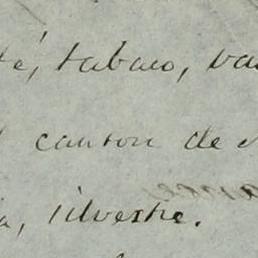 té, tabaco, va
canton de
silvestre.